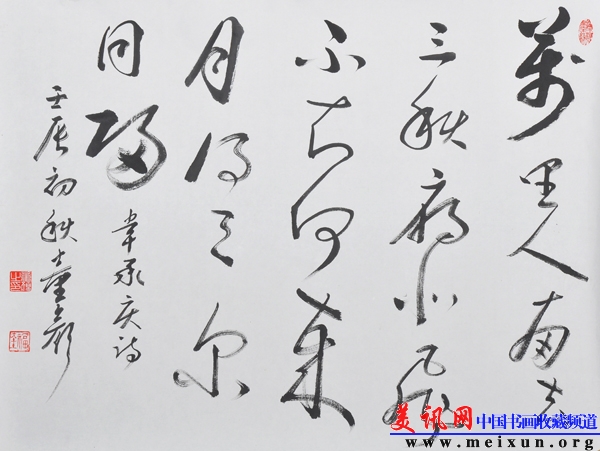 萬里人南去
三秋雁北飛
不知何歲
月得与尔
同歸
韋承庆詩
壬辰初秋
美讯网 中国书画收藏频道
www.meixun.org